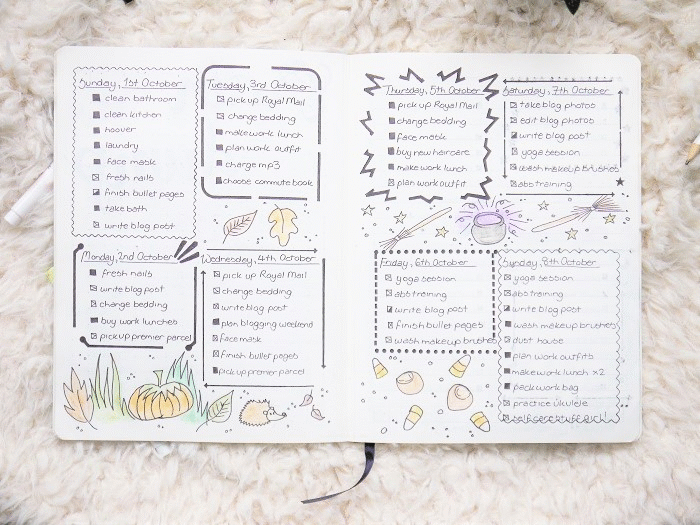 Sunday, 1st October
clean bathroom
clean kitchen
hoover
laundry
face mask
fresh nails
finish bullet pages
take bath
write blog post
Monday, 2nd October
fresh nails
write blog post
change bedding
buy work lunches
pick up premier parcel
Tuesday, 3rd October
pick up Royal Mail
change bedding
make work lunch
plan work outfit
charge mp3
choose commute book
Wednesday, 4th October
pick up Royal Mail
change bedding
write blog post
plan blogging weekend
face mask
finish bullet pages
pick up premier parcel
Thursday, 5th October
pick up Royal Mail
change bedding
face mask
buy new haircare
make work lunch
plan work outfit
Friday, 6th October
yoga session
abs training
write blog post
finish bullet pages
wash makeup brushes
Saturday, 7th October
take blog photos
edit blog photos
write blog post
yoga session
wash makeup brushes
abs training
Sunday, 8th October
yoga session
abs training
write blog post
wash makeup brushes
dust house
plan work outfits
make work lunch x2
pack work bag
practice ukulele